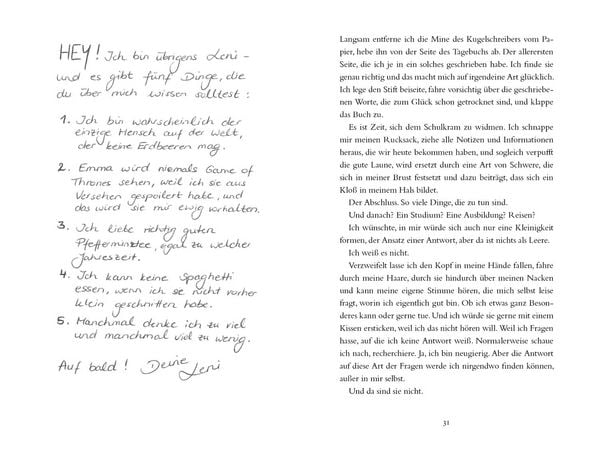 HEY! Ich bin übrigens Leni –
und es gibt fünf Dinge, die
du über mich wissen solltest:
1. Ich bin wahrscheinlich der
einzige Mensch auf der Welt,
der keine Erdbeeren mag.
2. Emma wird niemals Game of
Thrones sehen, weil ich sie aus
Versehen gespoilert habe, und
das wird sie mir ewig vorhalten.
3. Ich liebe richtig guten
Pfefferminztee, egal zu welcher
Jahreszeit.
4. Ich kann keine Spaghetti
essen, wenn ich sie nicht vorher
klein geschnitten habe.
5. Manchmal denke ich zu viel
und manchmal viel zu wenig.
Auf bald! Deine
Leni
Langsam entferne ich die Mine des Kugelschreibers vom Pa-
pier, hebe ihn von der Seite des Tagebuchs ab. Der allerersten
Seite, die ich je in ein solches geschrieben habe. Ich finde sie
genau richtig und das macht mich auf irgendeine Art glücklich.
Ich lege den Stift beiseite, fahre vorsichtig über die geschriebe-
nen Worte, die zum Glück schon getrocknet sind, und klappe
das Buch zu.
Es ist Zeit, sich dem Schulkram zu widmen. Ich schnappe
mir meinen Rucksack, ziehe alle Notizen und Informationen
heraus, die wir heute bekommen haben, und sogleich verpufft
die gute Laune, wird ersetzt durch eine Art von Schwere, die
sich in meiner Brust festsetzt und dazu beiträgt, dass sich ein
Kloß in meinem Hals bildet.
Der Abschluss. So viele Dinge, die zu tun sind.
Und danach? Ein Studium? Eine Ausbildung? Reisen?
Ich wünschte, in mir würde sich auch nur eine Kleinigkeit
formen, der Ansatz einer Antwort, aber da ist nichts als Leere.
Ich weiß es nicht.
Verzweifelt lasse ich den Kopf in meine Hände fallen, fahre
durch meine Haare, durch sie hindurch über meinen Nacken
und kann meine eigene Stimme hören, die mich selbst leise
fragt, worin ich eigentlich gut bin. Ob ich etwas ganz Beson-
deres kann oder gerne tue. Und ich würde sie gerne mit einem
Kissen ersticken, weil ich das nicht hören will. Weil ich Fragen
hasse, auf die ich keine Antwort weiß. Normalerweise schaue
ich nach, recherchiere. Ja, ich bin neugierig. Aber die Antwort
auf diese Art der Fragen werde ich nirgendwo finden können,
außer in mir selbst.
Und da sind sie nicht.
31